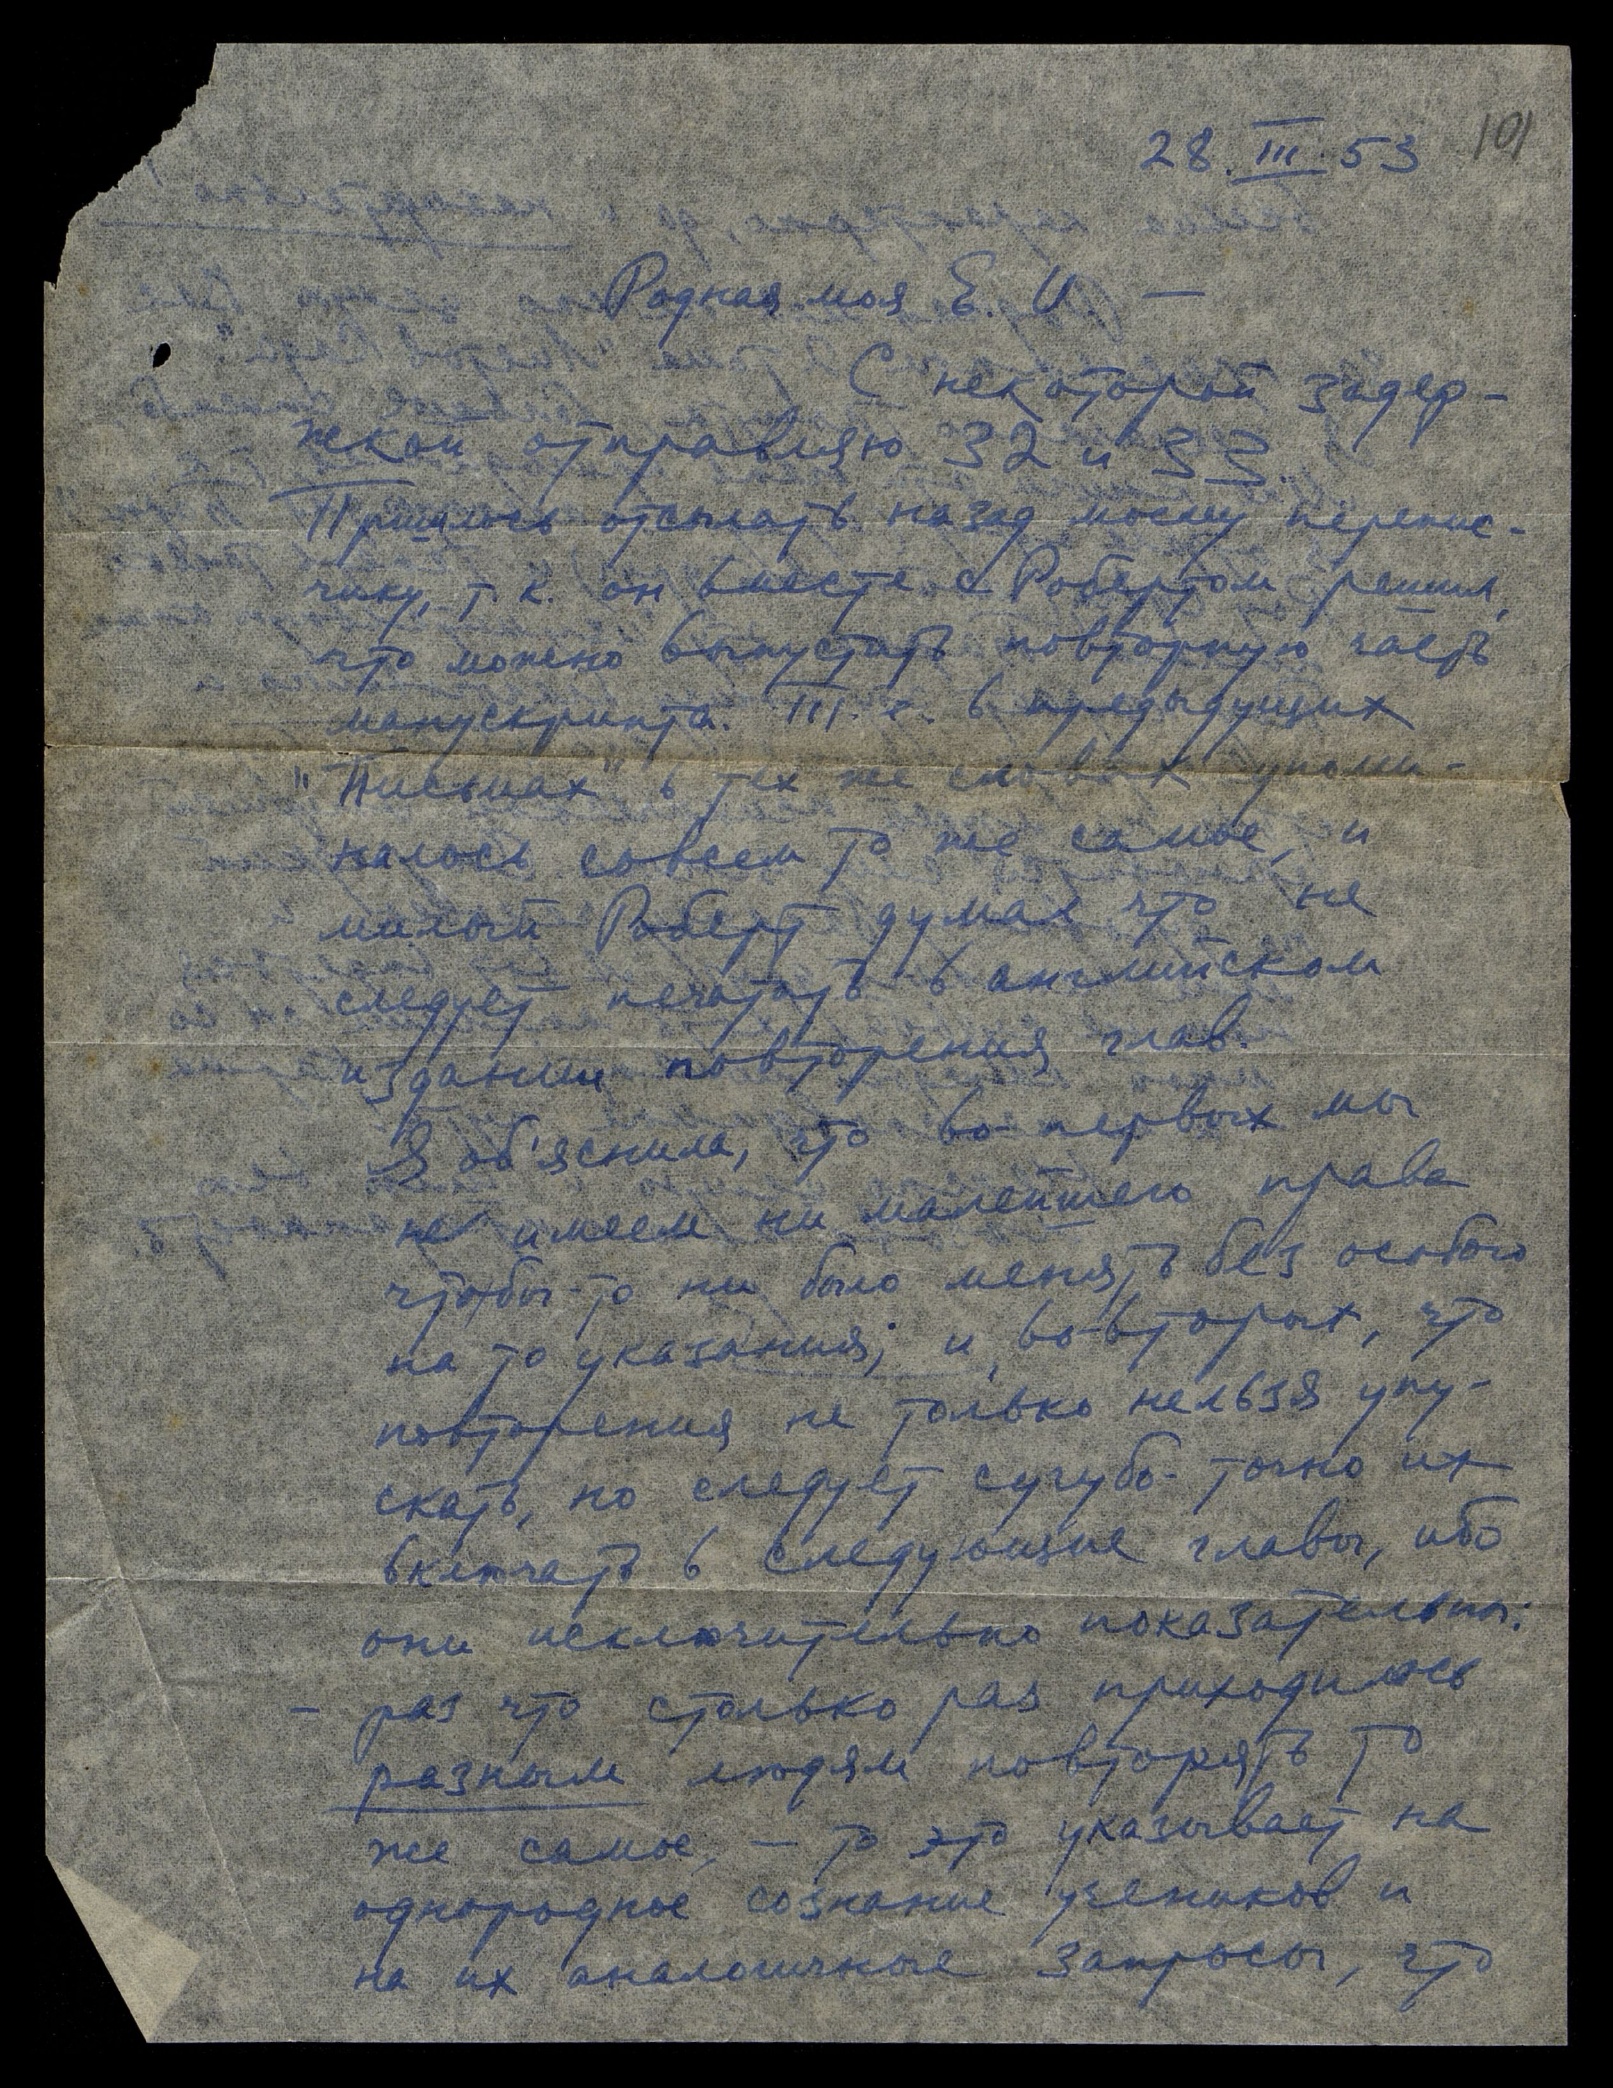 101
28.III.53
Родная моя Е. И. —
С некоторой задер-
жкой отправляю 32 и 33.
Пришлось отсылать назад моему перепис-
чику, т.к. он вместе с Робертом решил,
что можно выпустить повторную часть
манускрипта. Т.е. в предыдущих
"Письмах" в тех же словах упоми-
налось совсем то же самое, и
милый Роберт думал что не
следует печатать в английском
издании повторения глав.
Я об'яснила, что во-первых мы
не имеем ни малейшего права
чтобы-то ни было менять без особого
на то указания; и, во-вторых, что
повторения не только нельзя упу-
скать, но следует сугубо-точно их
включать в следующие главы, ибо
они исключительно показательны:
— раз что столько раз приходилось
разным людям повторять то
же самое, — то это указывает на
однородное сознание учеников и
на их аналогичные запросы, что